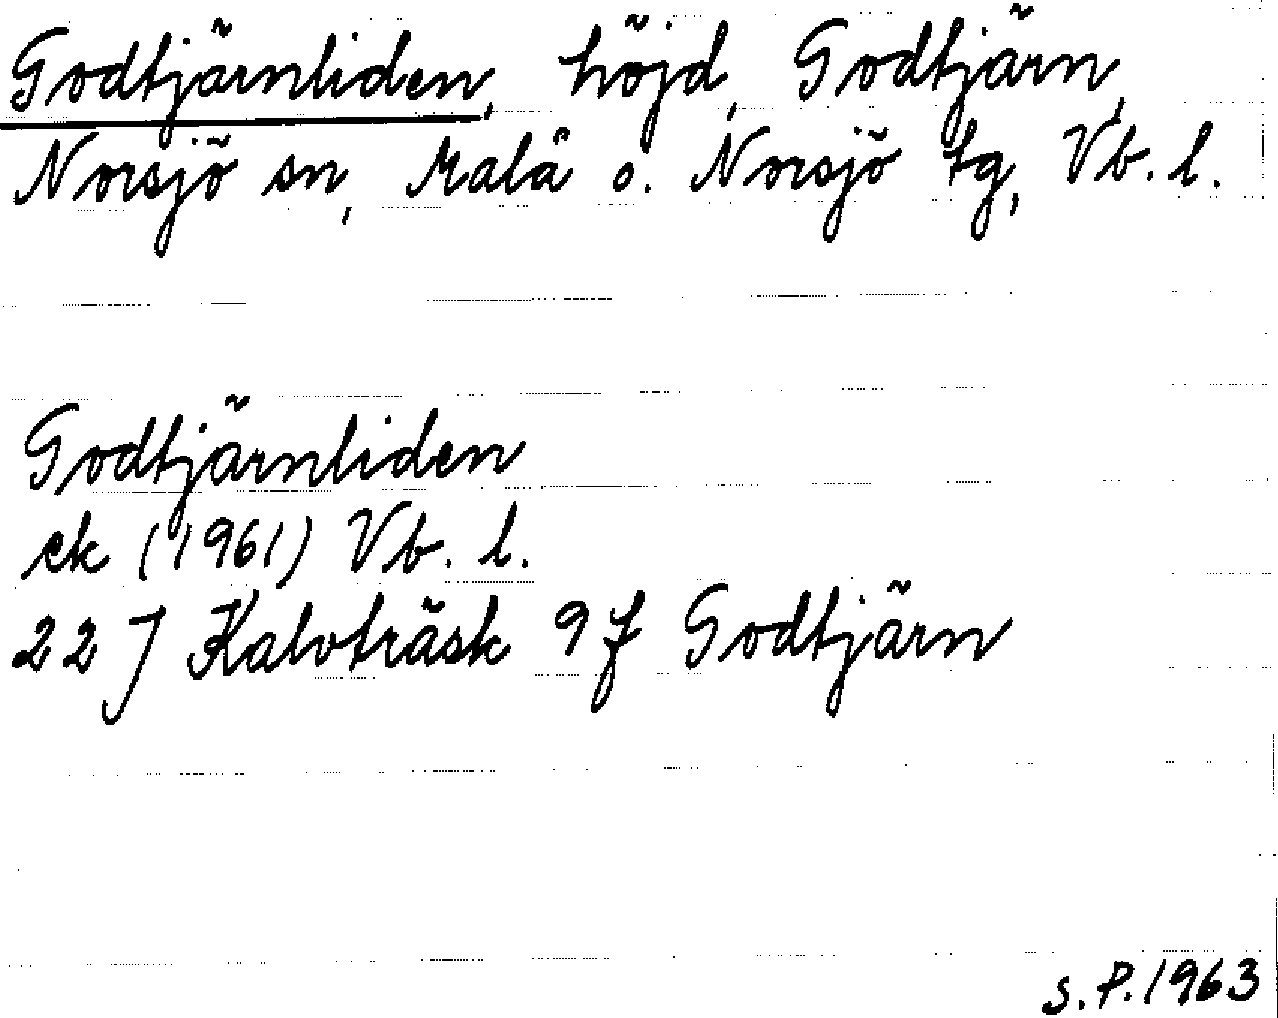 Godtjärnliden, höjd, Godtjärn,
Norsjö sn, Malå o. Norsjö tg, Vb. l.
Godtjärnliden
ek (1961) Vb. l.
22 J Kalvträsk 9 f Godtjärn
S.P. 1963